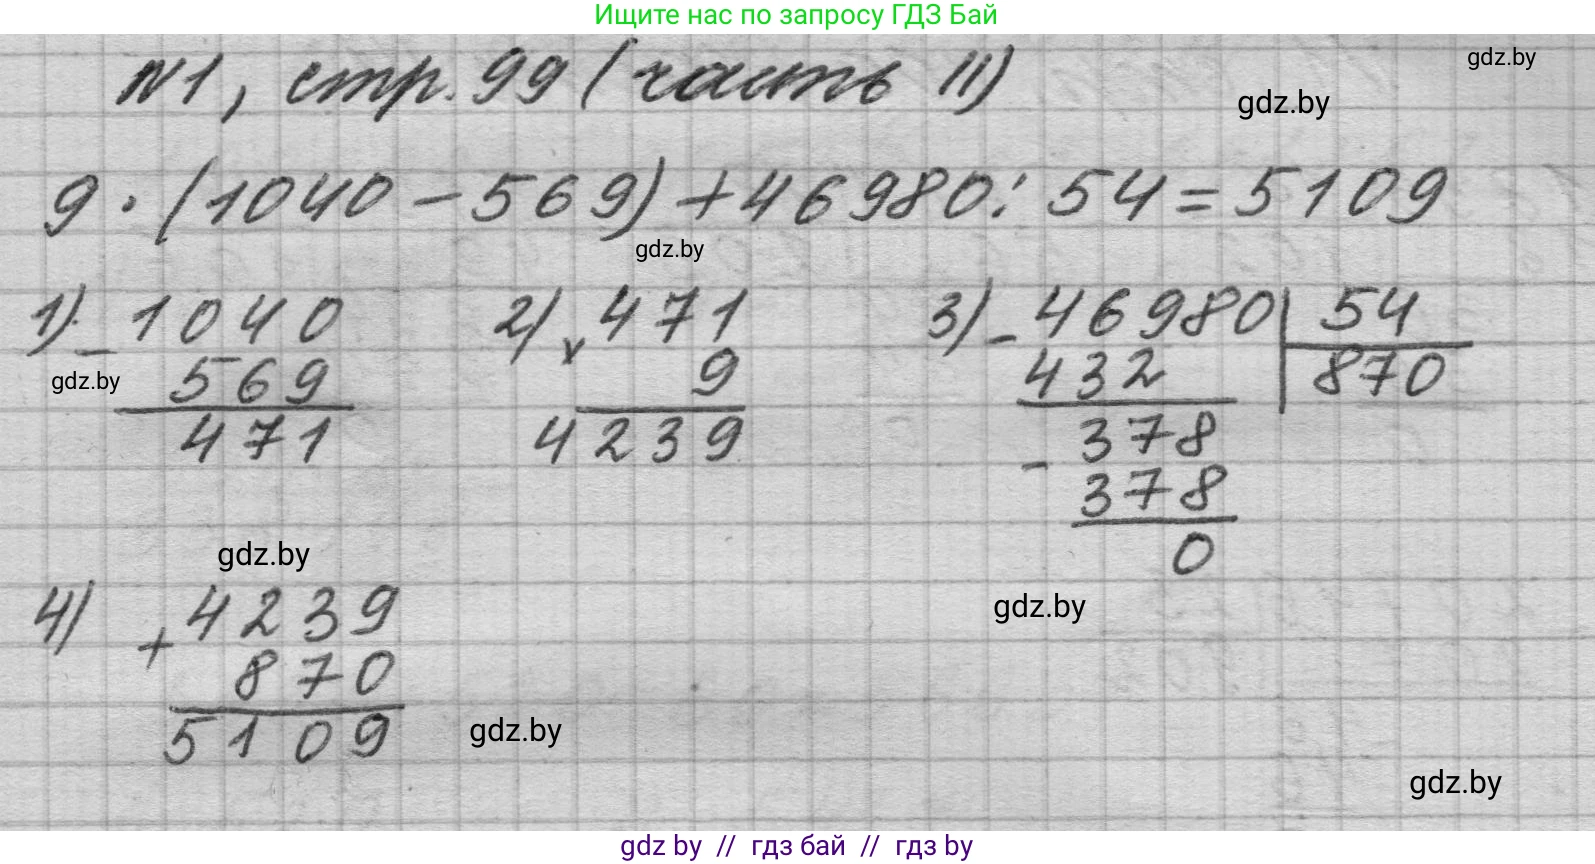 Ищите нас по запросу ГДЗ Бай
№1, стр. 99 (часть II)
gdz.by
gdz.by
9 · (1040 - 569) + 46980 : 54 = 5109
gdz.by
1) - 1040
569
471
gdz.by
2) x 471
9
4239
3) - 46980 | 54
432 870
- 378
378
0
gdz.by
gdz.by
4) + 4239
870
5109
gdz.by
gdz.by
gdz by // гдз бай // гдз by